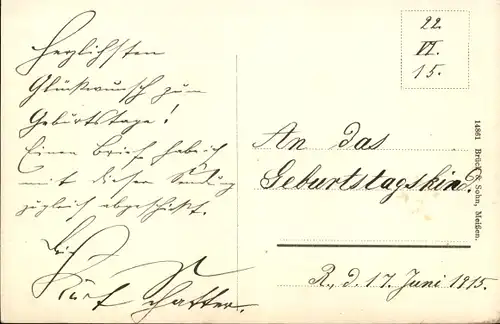 Herzlichsten
Glückwunsch zum
Geburtstage!
Einen Brief habe ich
mit dieser Sendung
zugleich abgeschickt.
Dein
Kurt
22.
VI.
15.
An das
Geburtstagskind.
R., d. 17. Juni 1915.
14861 Brück & Sohn, Meißen.